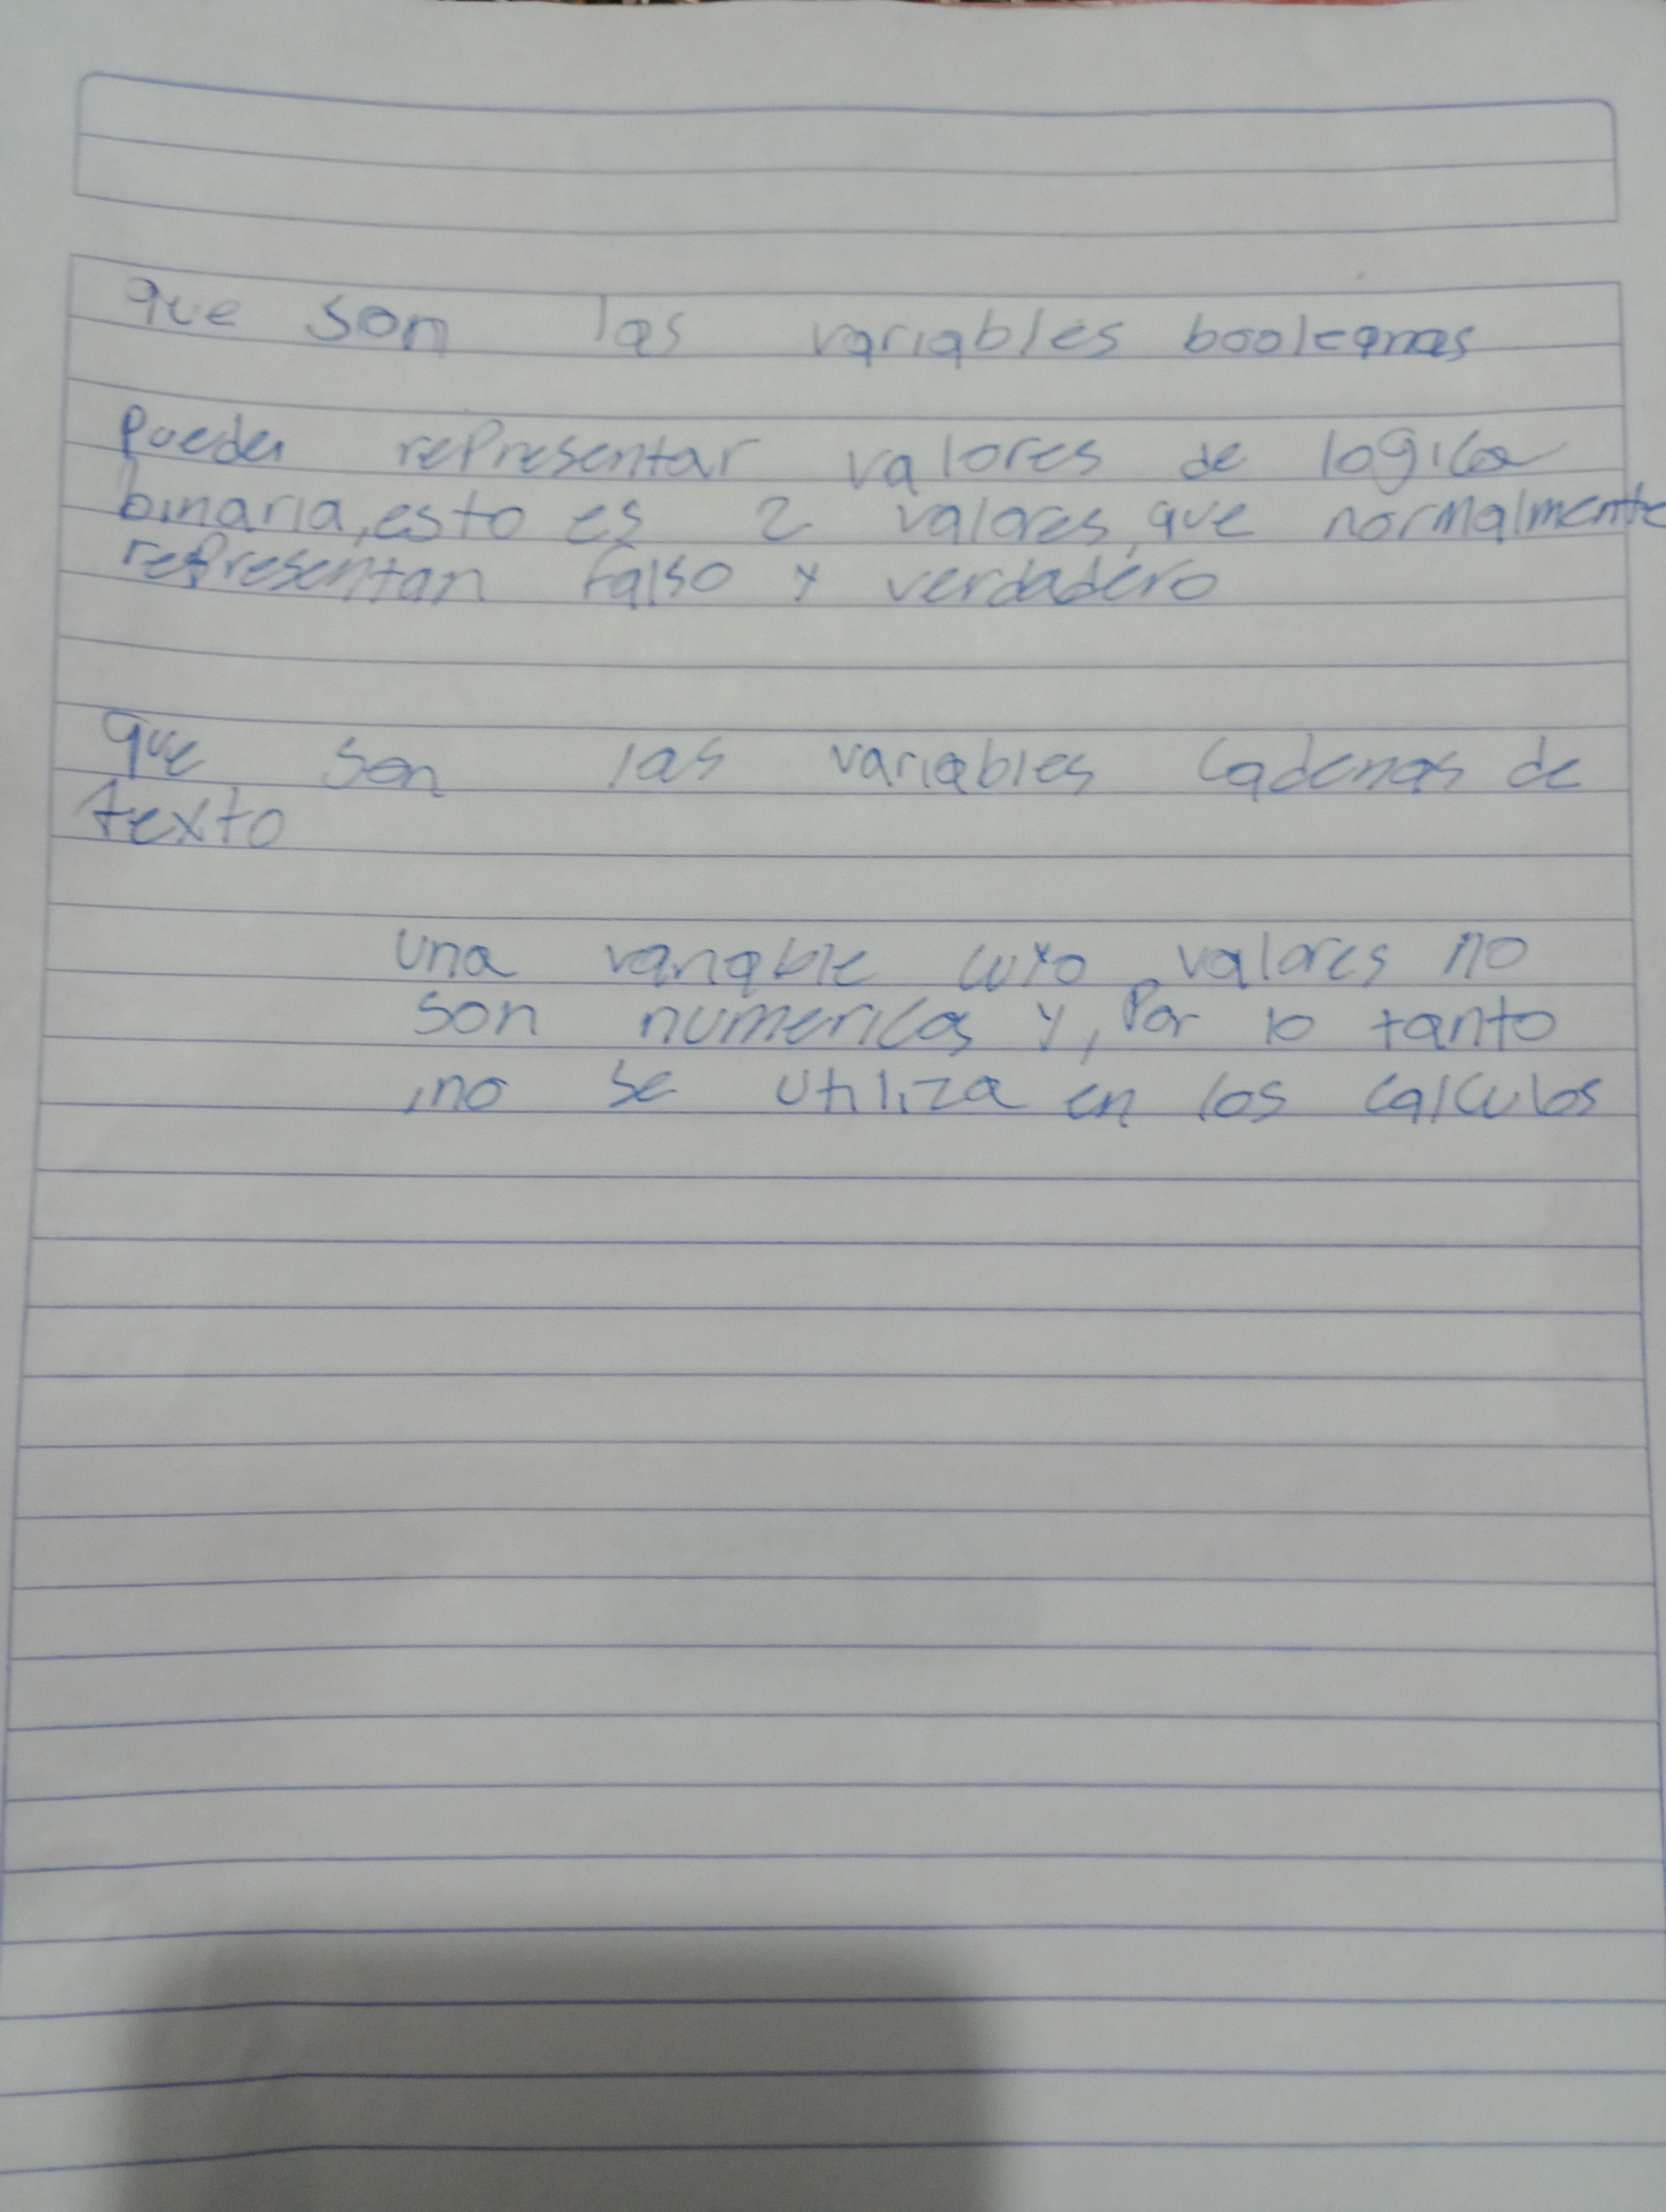 que son las variables booleanas
Pueden representar valores de logica
binaria, esto es 2 valores, que normalmente
representan falso y verdadero
que son las variables cadenas de
texto
una variable cuyo valores no
son numericos y, Por lo tanto
,no se utiliza en los calculos